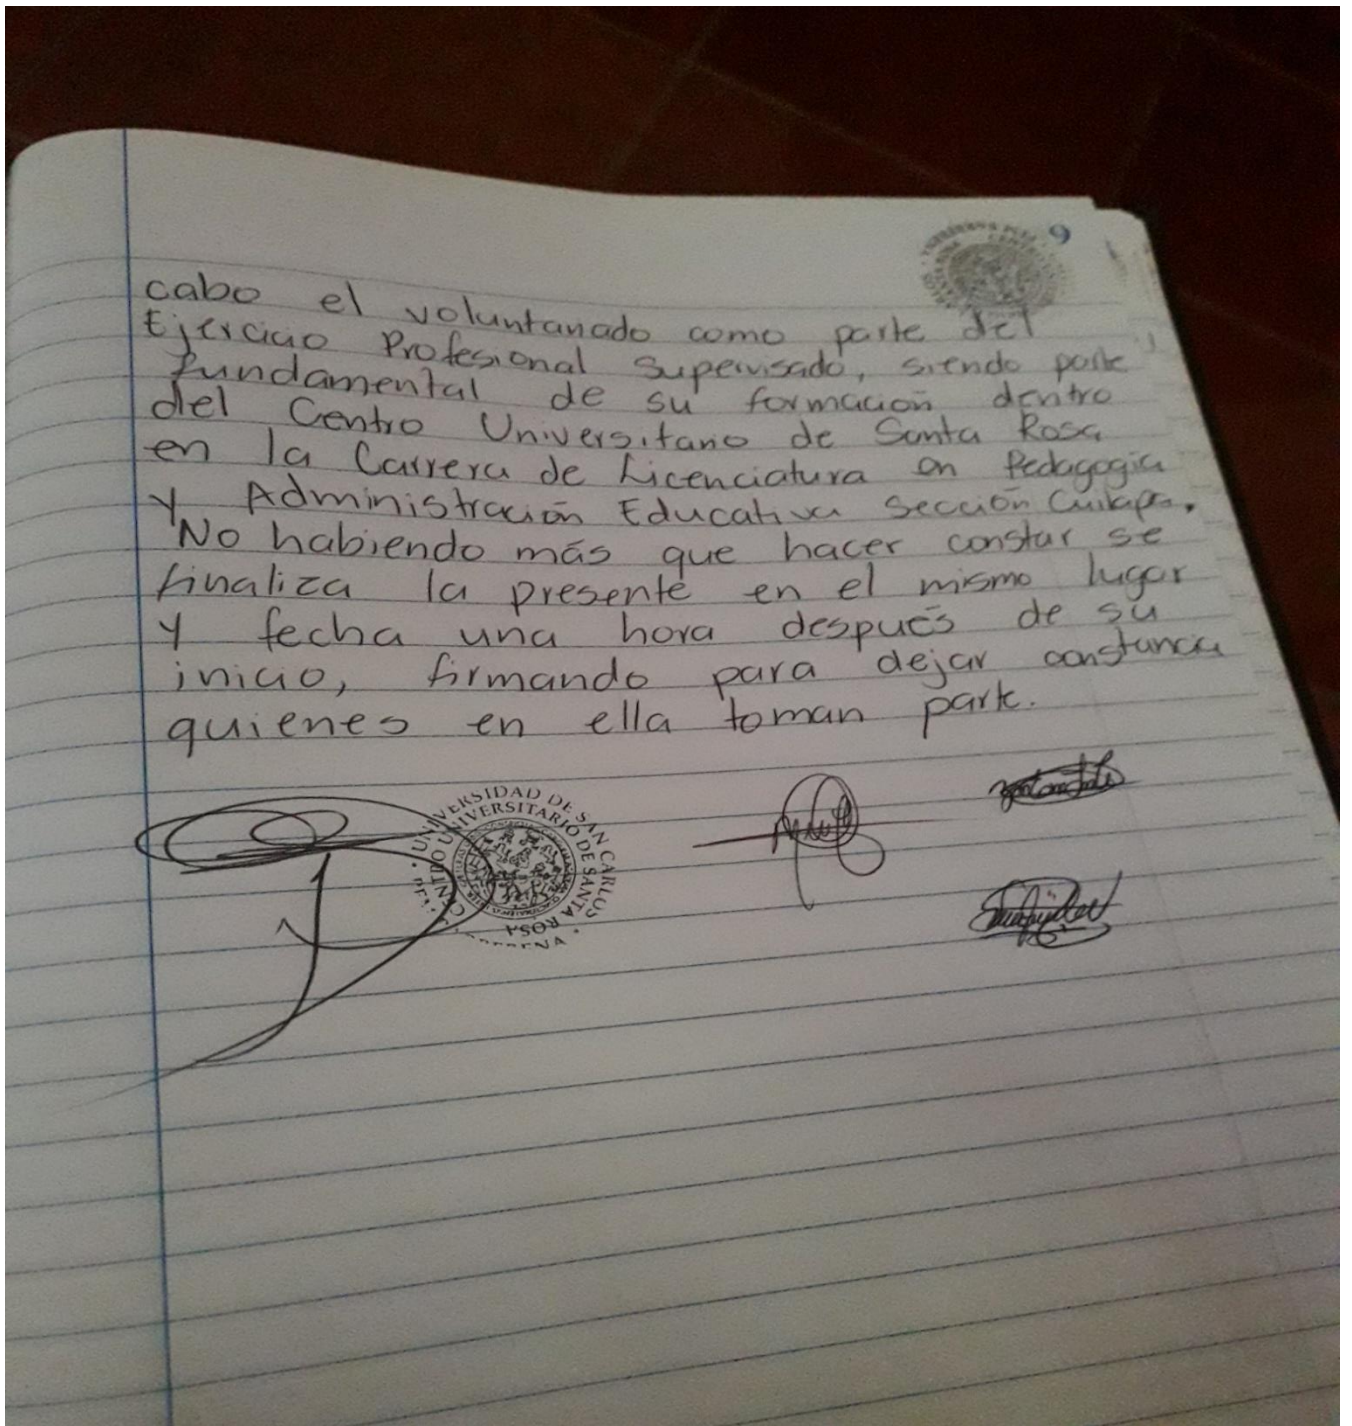 9
cabo el voluntariado como parte del
Ejercicio Profesional Supervisado, siendo parte
fundamental de su formación dentro
del Centro Universitario de Santa Rosa
en la Carrera de Licenciatura en Pedagogía
y Administración Educativa Sección Cuilapa.
No habiendo más que hacer constar se
finaliza la presente en el mismo lugar
y fecha una hora después de su
inicio, firmando para dejar constancia
quienes en ella toman parte.
UNIVERSIDAD DE SAN CARLOS
CENTRO UNIVERSITARIO DE SANTA ROSA